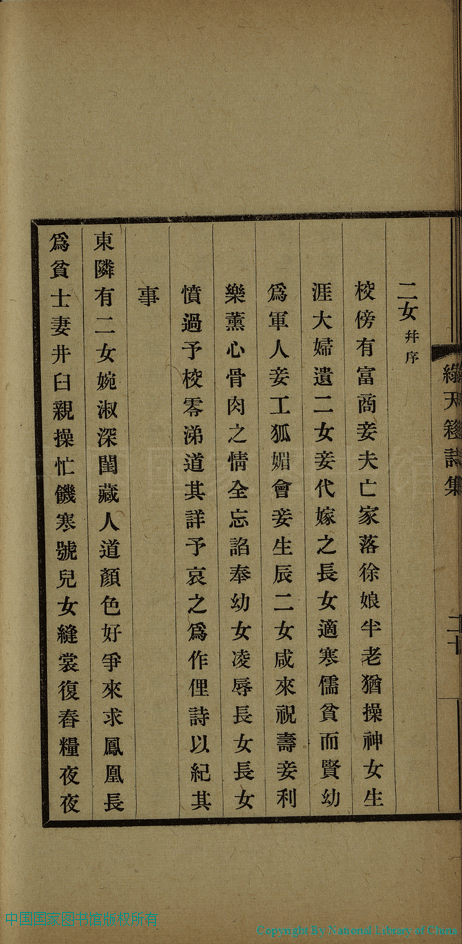 二女并序
校傍有富商妾夫亡家落徐娘半老猶操神女生
涯大婦遺二女妾代嫁之長女適寒儒貧而賢幼
為軍人妾工狐媚會妾生辰二女咸來祝壽妾利
樂薰心骨肉之情全忘諂奉幼女凌辱長女長女
憤過予校零涕道其詳予哀之為作俚詩以紀其
事
東隣有二女婉淑深閨藏人道顏色好爭來求鳳凰長
為貧士妻井臼親操忙饑寒號兒女縫裳復舂糧夜夜
天
集
二十
中国国家图书馆版权所有
Copyright By National Library of China